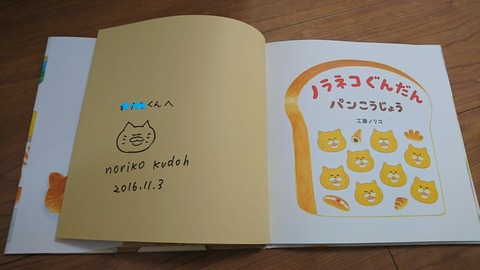 くんへ
noriko kudoh
2016.11.3
ノラネコぐんだん
パンこうじょう
工藤ノリコ